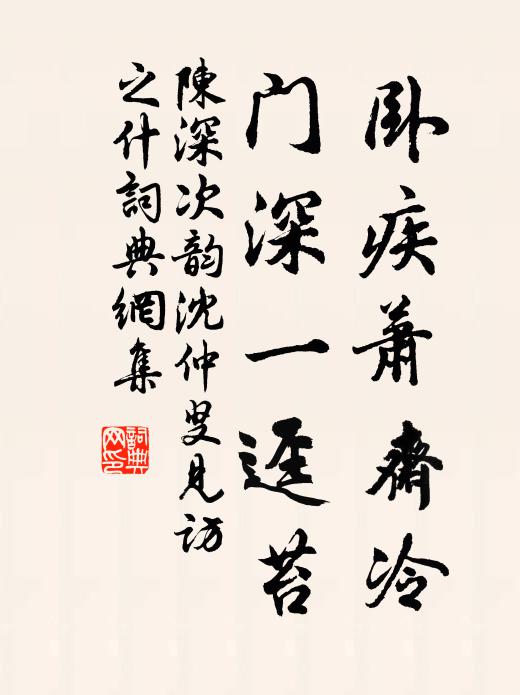 卧疾萧齋冷
门深一逕苔
陳深次韵沈仲叟見访
之什詞典網集
詞典
网印